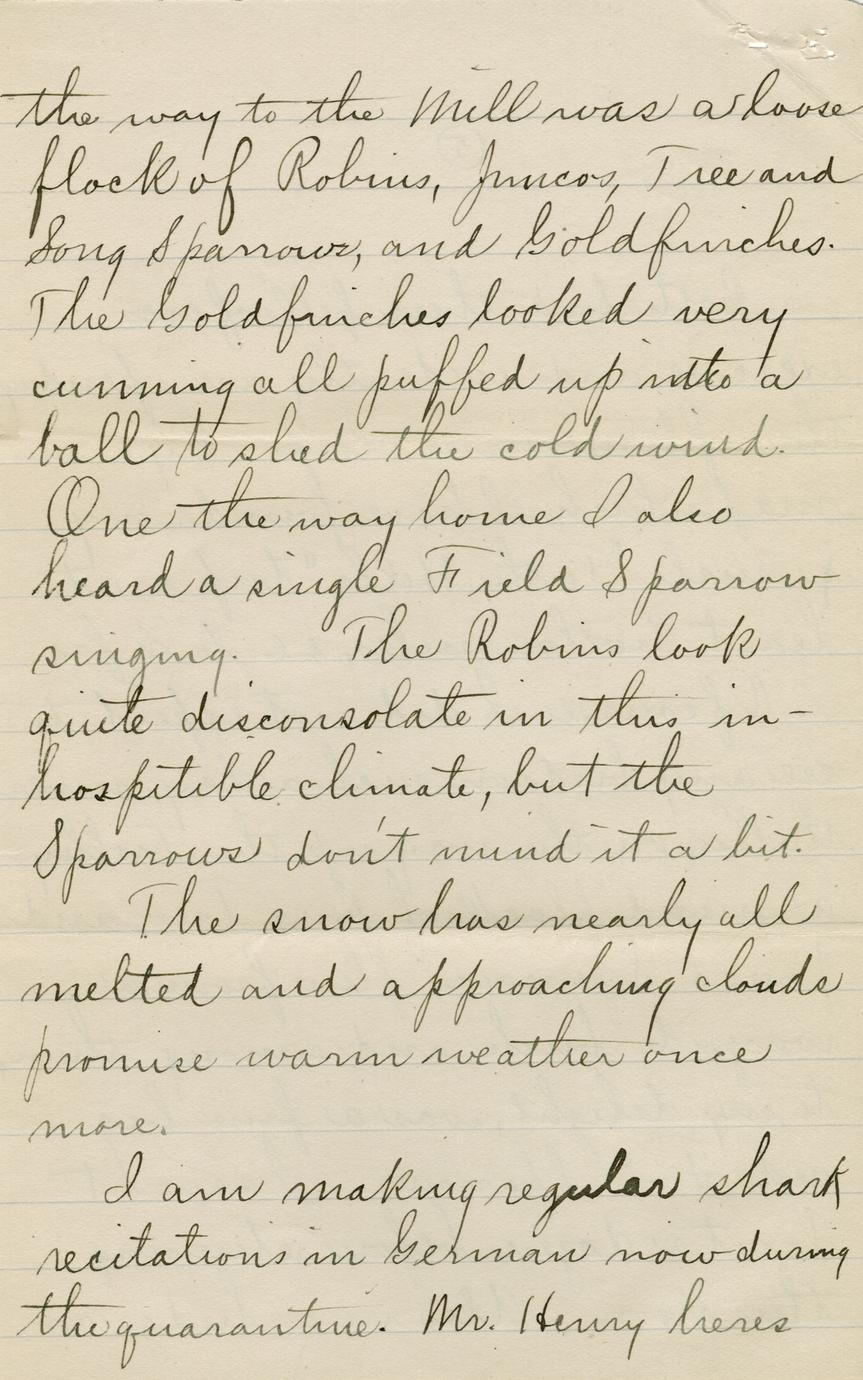 the way to the Mill was a loose
flock of Robins, Juncos, Tree and
Song Sparrows, and Goldfinches.
The Goldfinches looked very
cunning all puffed up into a
ball to shed the cold wind.
One the way home I also
heard a single Field Sparrow
singing. The Robins look
quite disconsolate in this in-
hospitible climate, but the
Sparrows don't mind it a bit.
The snow has nearly all
melted and approaching clouds
promise warm weather once
more.
I am making regular shark
recitations in German now during
the quarantine. Mr. Henry heres